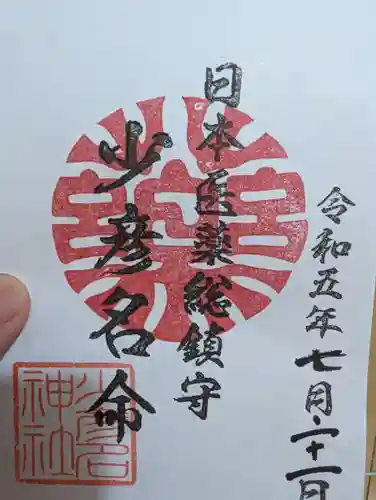 令和五年七月二十一日
日本医薬総鎮守
少彦名命
薬
少彦名
神社